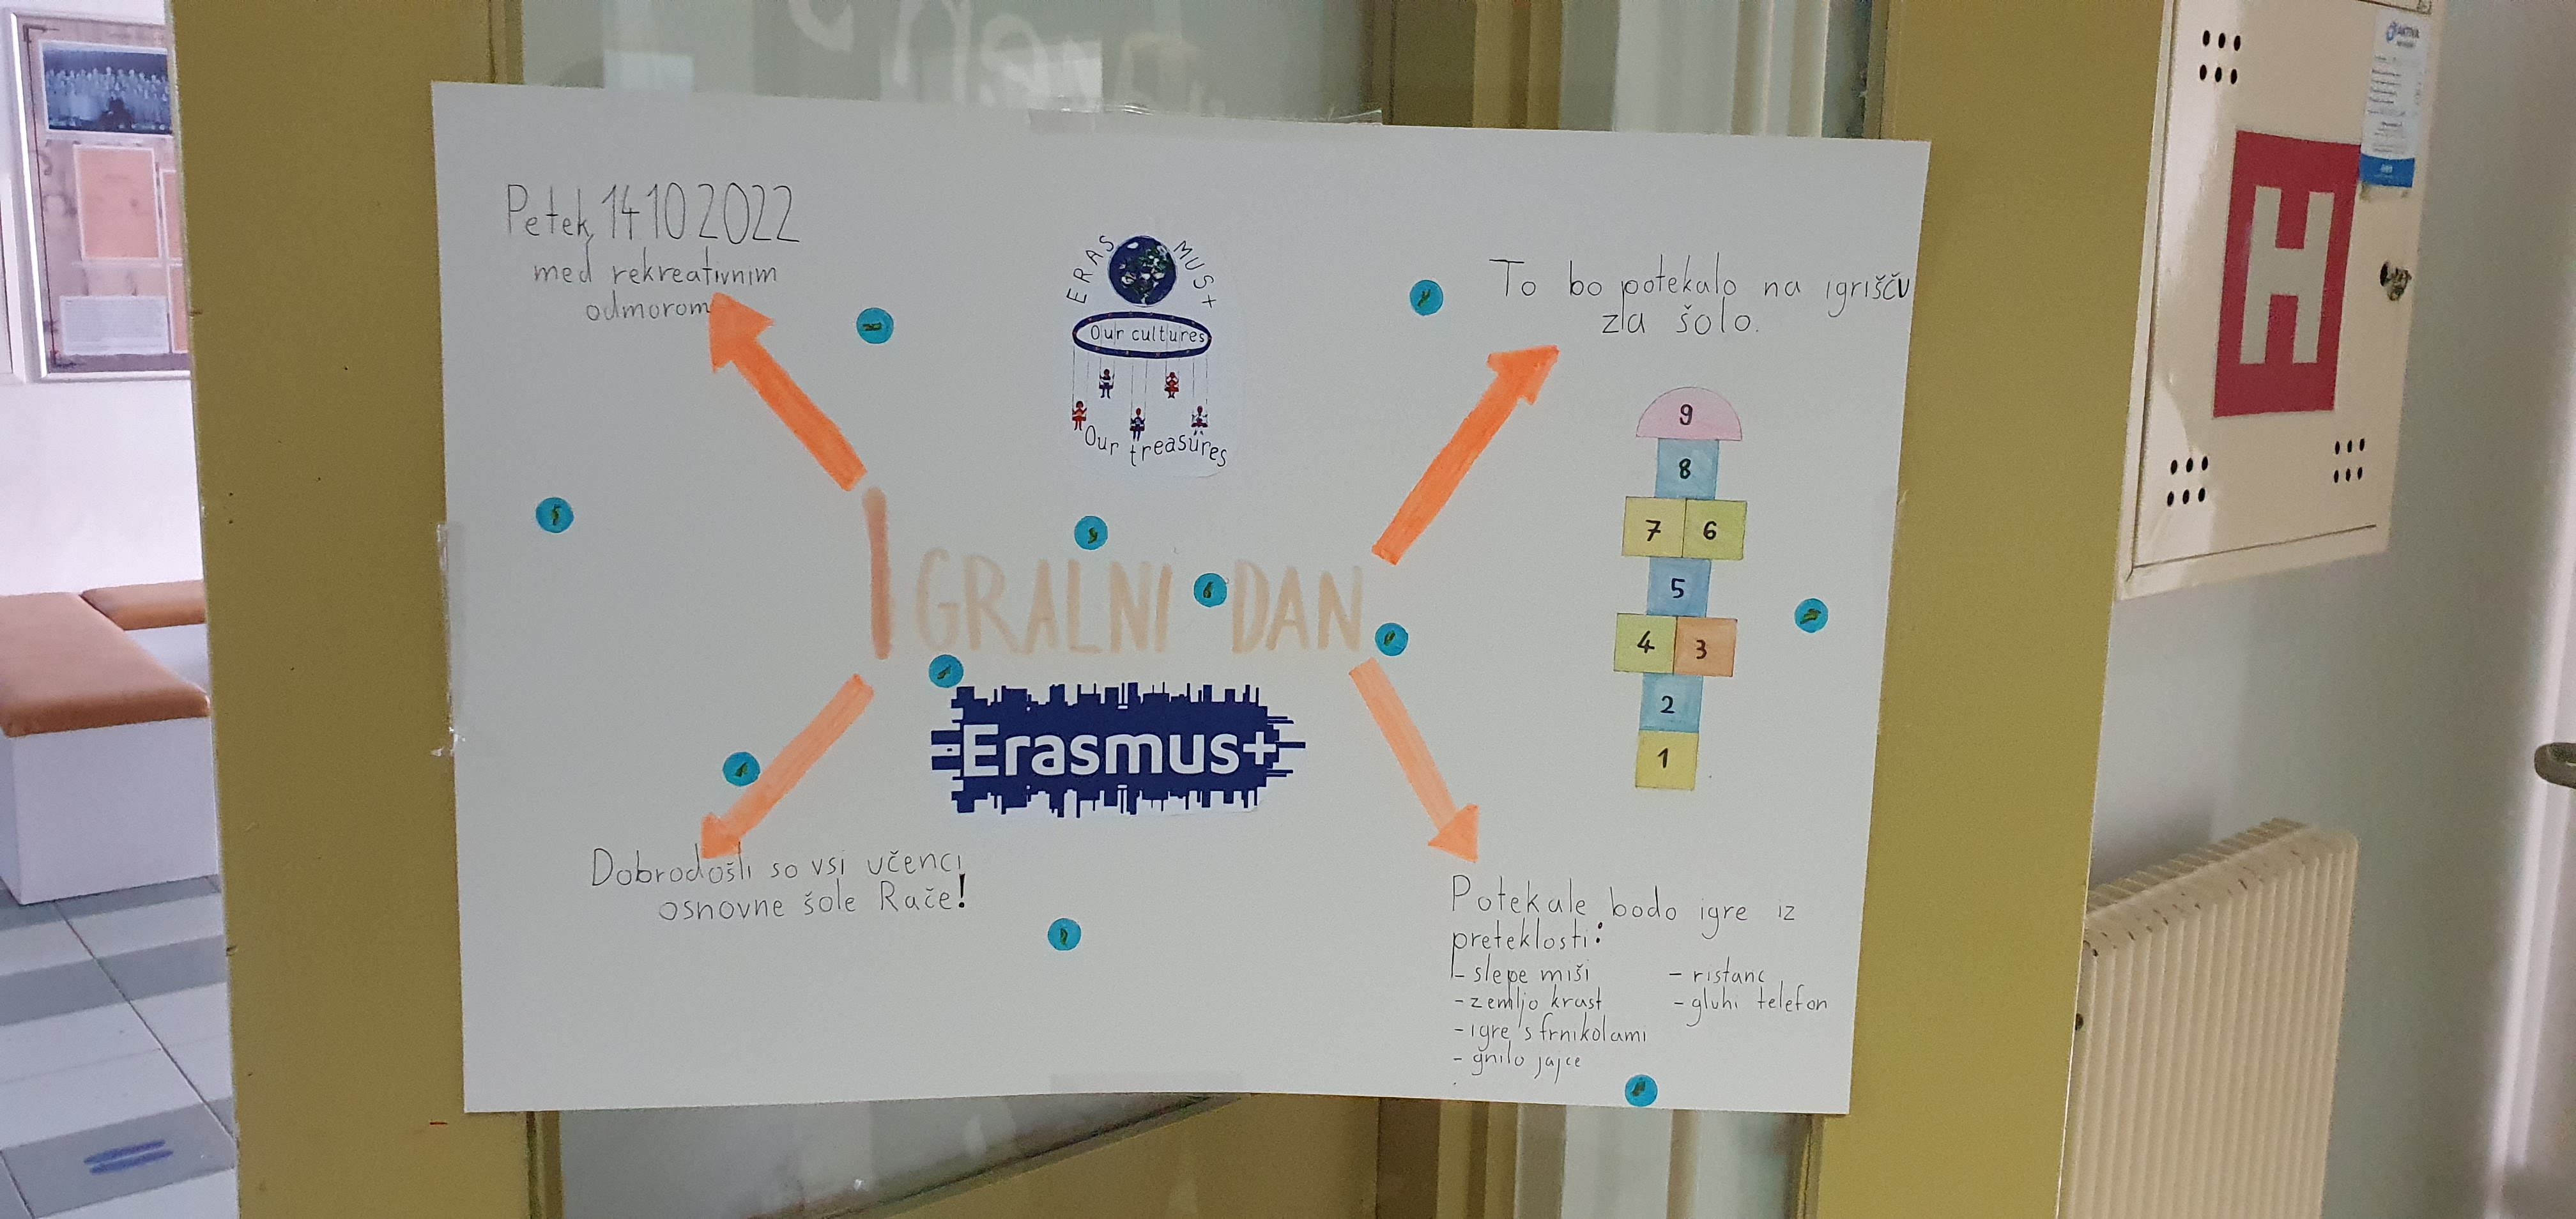 Petek, 14 10 2022
med rekreativnim
odmorom
ERASMUS+
Our cultures
Our treasures
To bo potekalo na igrišču
za šolo.
9
8
7 6
5
4 3
2
1
IGRALNI DAN
Erasmus+
Dobrodošli so vsi učenci
osnovne šole Rače!
Potekale bodo igre iz
preteklosti:
- slepe miši
- zemljo krast
- igre s frnikolami
- gnilo jajce
- ristanc
- gluhi telefon
H
AKTIVA